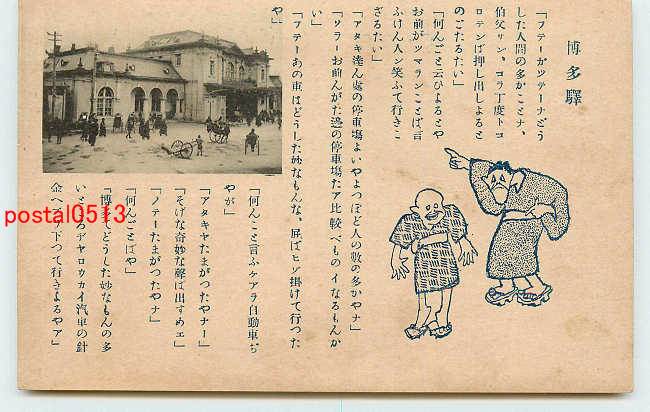 博多驛
「フテーガツテーナどう
した人間の多かことナ、
伯父サン、コラ丁度トコ
ロテンば押し出しよると
のごたるたい」
「何んごと云ひよるとや
お前がツマランことば言
ふけん人ン笑ふて行きこ
ざるたい」
「アタキ達ん處の停車塲よいやよつぽど人の數の多かやナ」
「ソラーお前んがた邊の停車塲たア比較べものイなるもんか
い」
「フテーあの車はどうした妙なもんな、屁ばヒッ掛けて行つた
や」
「何んごと言ふケアラ自動車ぢ
やが」
「アタキヤたまがつたやナー」
「そげな奇妙な聲ば出すめエ」
「ノテーたまがつたやナ」
「何んごとばや」
「博多てどうした妙なもんの多
いところヂヤロウカイ汽車の針
金へ
下つて行きよるやア」
postal0513